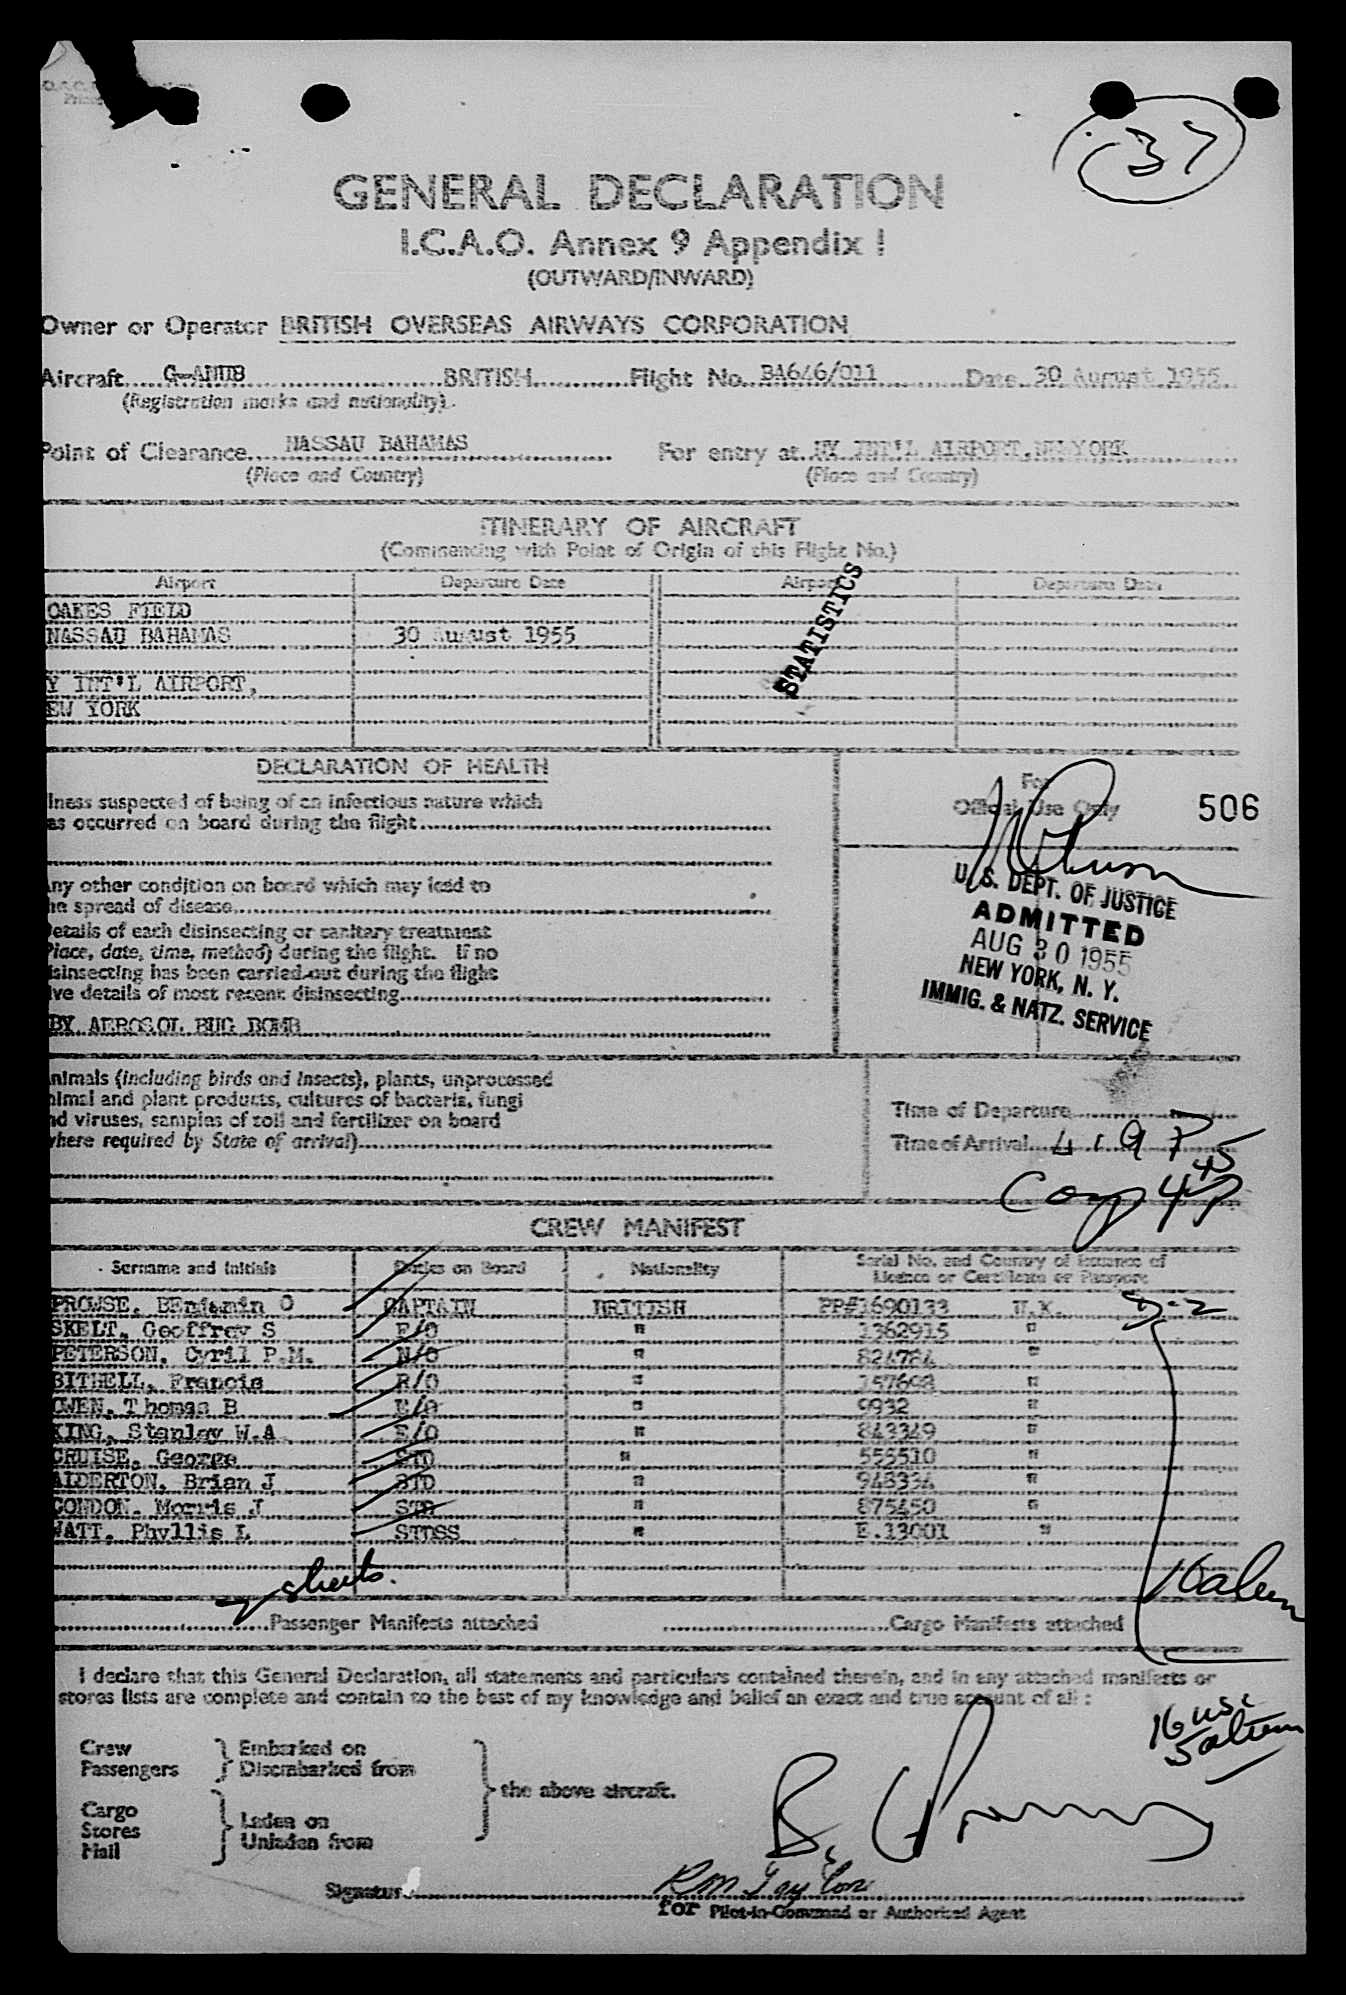 37
GENERAL DECLARATION
I.C.A.O. Annex 9 Appendix I
(OUTWARD/INWARD)
Owner or Operator BRITISH OVERSEAS AIRWAYS CORPORATION
Aircraft BRITISH Flight No. BA646/011 Date 30 August 1955
(Registration marks and nationality).
Point of Clearance NASSAU BAHAMAS For entry at NY INT'L AIRPORT, NEW YORK
(Place and Country) (Place and Country)
ITINERARY OF AIRCRAFT
(Commencing with Point of Origin of this Flight No.)
Airport Departure Date Airport Departure Date
OAKES FIELD
NASSAU BAHAMAS 30 August 1955
Y INT'L AIRPORT,
EW YORK
STATISTICS
DECLARATION OF HEALTH
For
Official Use Only 506
lness suspected of being of an infectious nature which
as occurred on board during the flight
ny other condition on board which may lead to
he spread of disease
etails of each disinsecting or sanitary treatment
Place, date, time, method) during the flight. If no
isinsecting has been carried out during the flight
ive details of most recent disinsecting
BY AEROSOL BUG BOMB
U. S. DEPT. OF JUSTICE
ADMITTED
AUG 30 1955
NEW YORK, N. Y.
IMMIG. & NATZ. SERVICE
nimals (including birds and insects), plants, unprocessed
nimal and plant products, cultures of bacteria, fungi
nd viruses, samples of soil and fertilizer on board
where required by State of arrival)
Time of Departure
Time of Arrival
CREW MANIFEST
Surname and Initials Duties on Board Nationality Serial No. and Country of Issuance of
Licence or Certificate or Passport
PROWSE, BEnjamin O CAPTAIN BRITISH PP#1690133 U.K.
SKELT, Geoffrey S F/O " 1362915 "
PETERSON, Cyril P.M. N/O " 824784 "
BITHELL, Francis R/O " 157698 "
OWEN, Thomas B E/O " 9932 "
KING, Stanley W.A E/O " 843349 "
CRUISE, George STD " 553510 "
ALDERTON, Brian J STD " 948334 "
CONDON, Morris J STD " 875450 "
WATT, Phyllis L STDSS " E.13001 "
sheets.
Passenger Manifests attached Cargo Manifests attached
I declare that this General Declaration, all statements and particulars contained therein, and in any attached manifests or
stores lists are complete and contain to the best of my knowledge and belief an exact and true account of all :
Crew } Embarked on
Passengers } Disembarked from
} the above aircraft.
Cargo
Stores } Laden on
Mail } Unladen from
Signature RM Taylor
for Pilot-in-Command or Authorised Agent